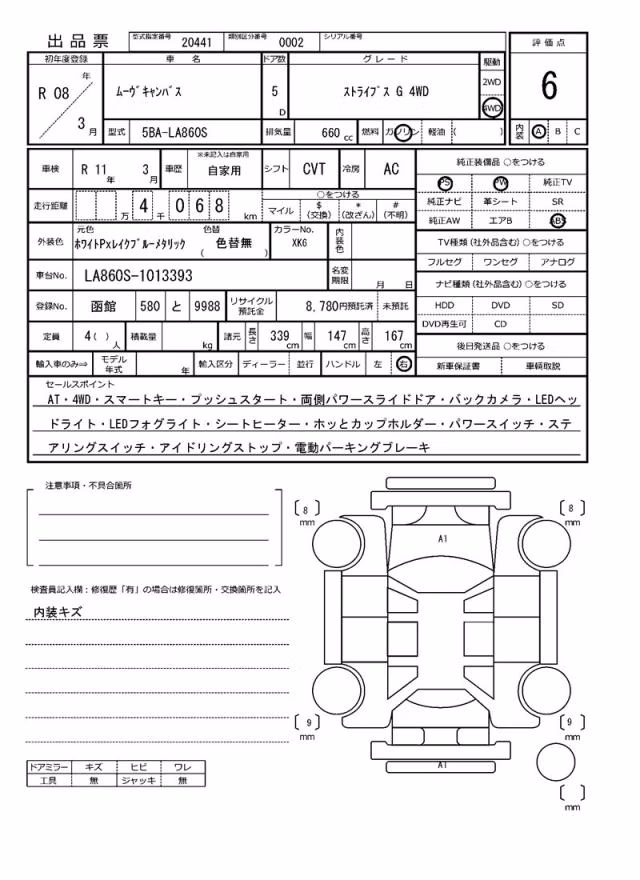 出品票 型式指定番号 20441 類別区分番号 0002 シリアル番号
評価点
6
内装 A B C
初年度登録 車名 ドア数 グレード 駆動
R 08 年 3 月
ムーヴキャンバス
5 D
ストライプス G 4WD
2WD
4WD
型式 5BA-LA860S 排気量 660 cc 燃料 ガソリン 軽油 ( )
車検 R 11 年 3 月 車歴 ※未記入は自家用 自家用 シフト CVT 冷房 AC
走行距離 万 4 千 0 6 8 km
○をつける
マイル $ (交換) * (改ざん) # (不明)
外装色 元色 ホワイトPxレイクブルーメタリック 色替 ( 色替無 ) カラーNo. XKG 内装色
車台No. LA860S-1013393 名変期限 月 日
登録No. 函館 580 と 9988 リサイクル預託金 8,780円預託済 未預託
定員 4( ) 人 積載量 kg 諸元 長さ 339 cm 幅 147 cm 高さ 167 cm
輸入車のみ⇒ モデル年式 年 輸入区分 ディーラー 並行 ハンドル 左 右
純正装備品 ○をつける
PS PW 純正TV
純正ナビ 革シート SR
純正AW エアB ABS
TV種類(社外品含む)○をつける
フルセグ ワンセグ アナログ
ナビ種類(社外品含む)○をつける
HDD DVD SD
DVD再生可 CD
後日発送品 ○をつける
新車保証書 車輌取説
セールスポイント
AT・4WD・スマートキー・プッシュスタート・両側パワースライドドア・バックカメラ・LEDヘッ
ドライト・LEDフォグライト・シートヒーター・ホッとカップホルダー・パワースイッチ・ステ
アリングスイッチ・アイドリングストップ・電動パーキングブレーキ
注意事項・不具合箇所
検査員記入欄:修復歴「有」の場合は修復箇所・交換箇所を記入
内装キズ
ドアミラー キズ ヒビ ワレ
工具 無 ジャッキ 無
8 mm
8 mm
A1
9 mm
9 mm
A1
mm